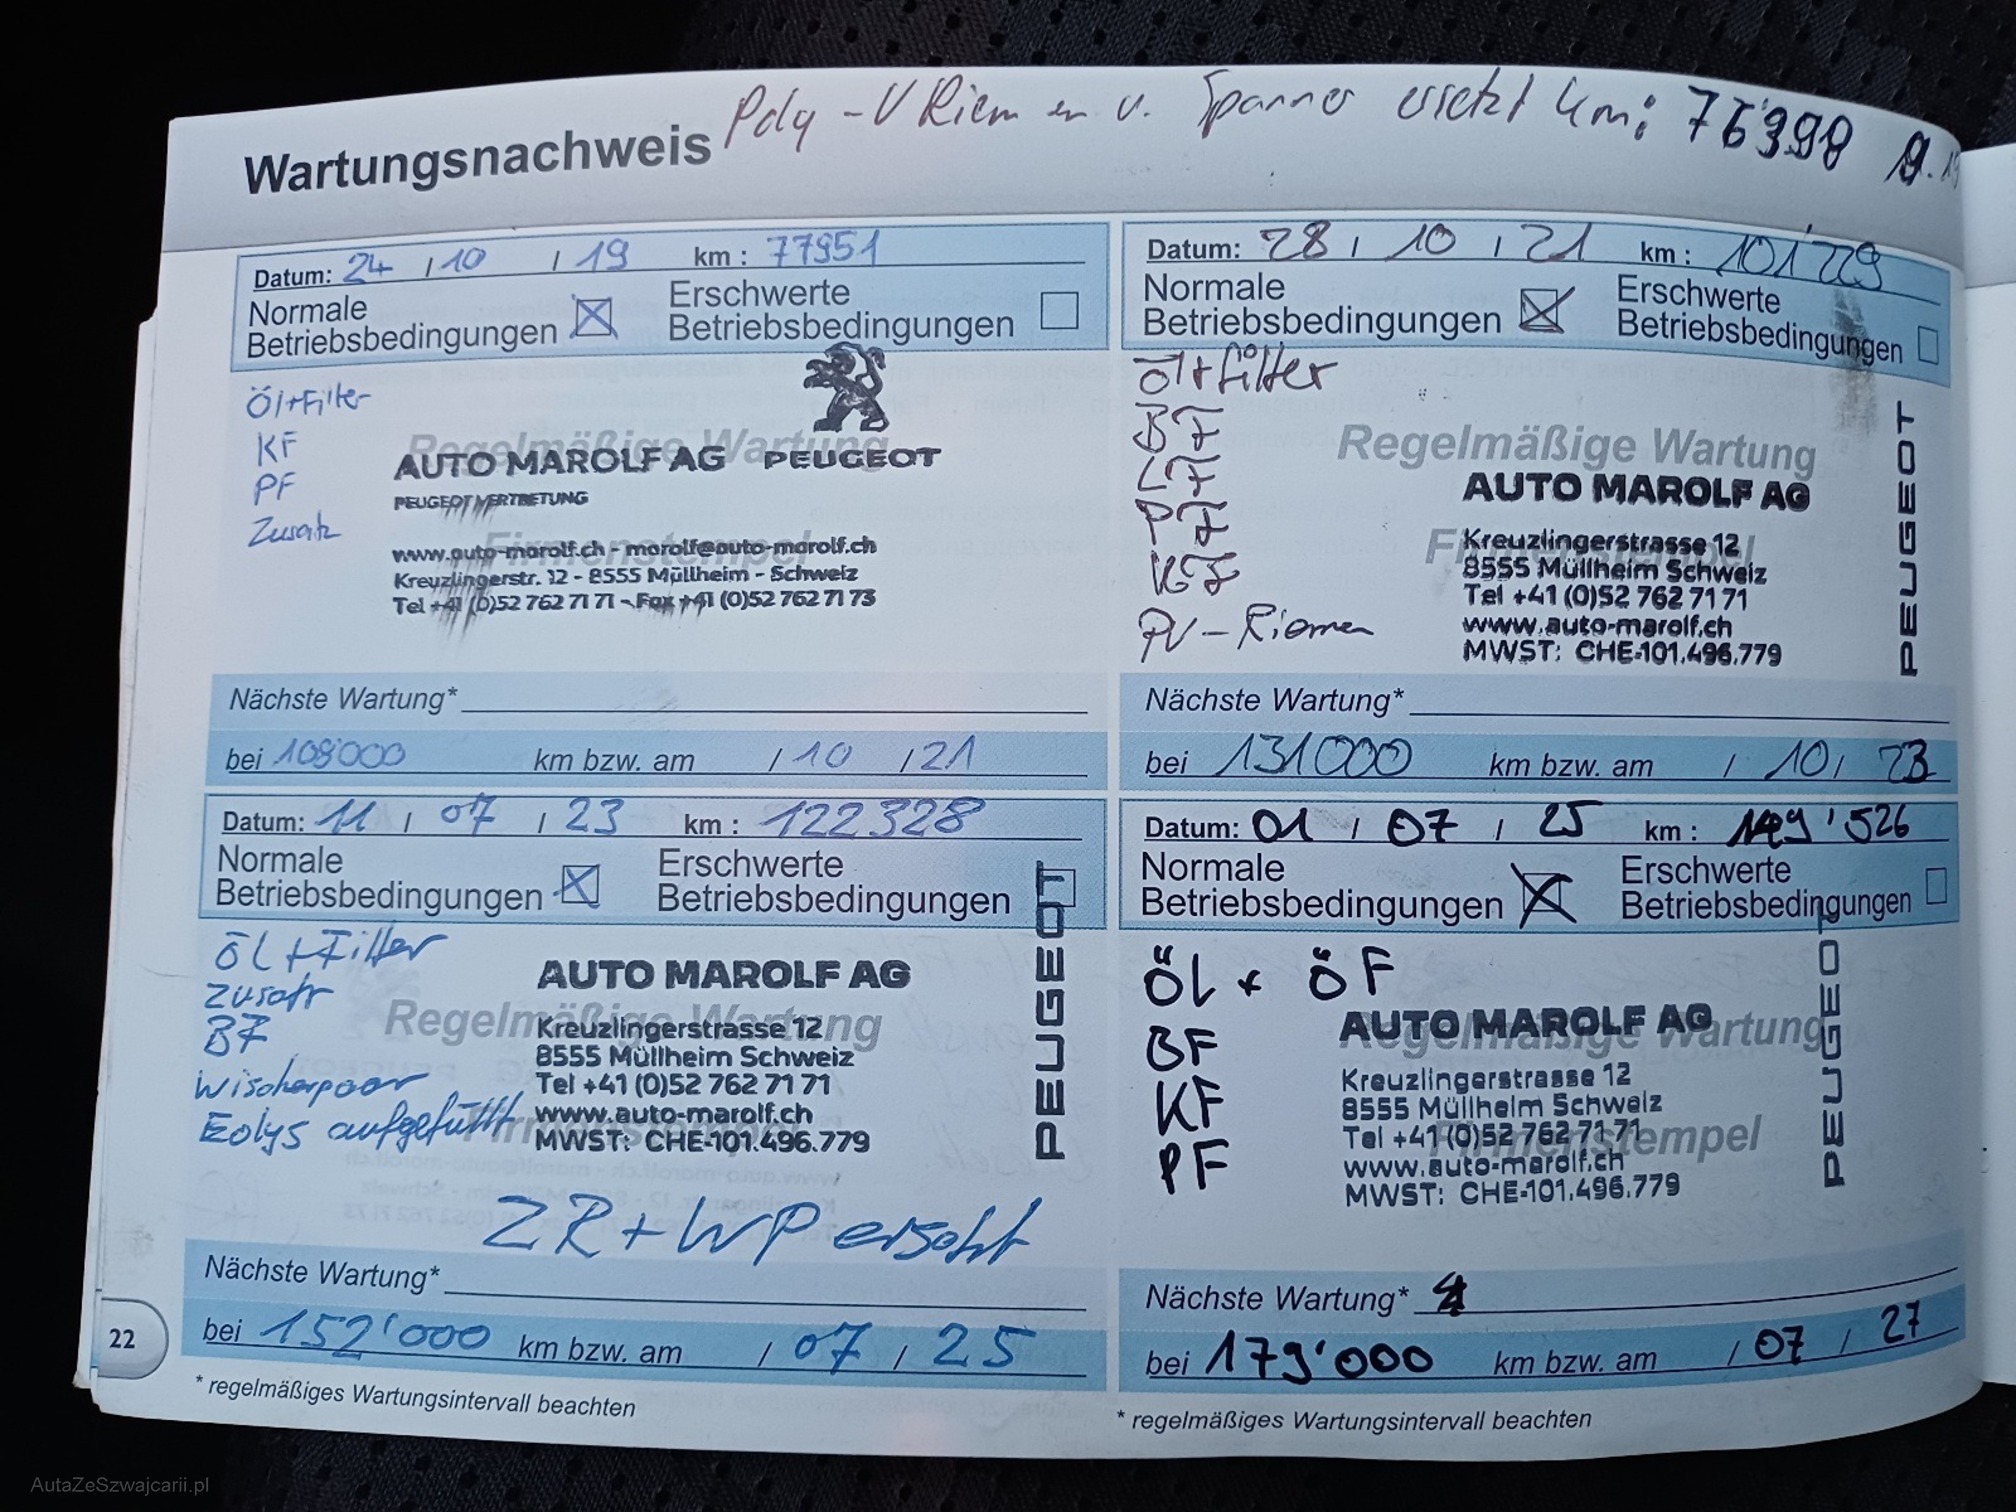 Wartungsnachweis Poly-V Riemen u. Spanner ersetzt km: 76'398 9.19
Datum: 24 / 10 / 19 km : 77951
Normale Betriebsbedingungen ☒ Erschwerte Betriebsbedingungen ☐
Öl+Filter
KF
PF
Zusatz
Regelmäßige Wartung
Firmenstempel
AUTO MAROLF AG PEUGEOT
PEUGEOT VERTRETUNG
www.auto-marolf.ch - marolf@auto-marolf.ch
Kreuzlingerstr. 12 - 8555 Müllheim - Schweiz
Tel +41 (0)52 762 71 71 - Fax +41 (0)52 762 71 73
Nächste Wartung*
bei 108'000 km bzw. am / 10 / 21
Datum: 28 / 10 / 21 km : 101'229
Normale Betriebsbedingungen ☒ Erschwerte Betriebsbedingungen ☐
Öl+Filter
BF
LF
PF
KF
PV-Riemen
Regelmäßige Wartung
Firmenstempel
AUTO MAROLF AG
Kreuzlingerstrasse 12
8555 Müllheim Schweiz
Tel +41 (0)52 762 71 71
www.auto-marolf.ch
MWST: CHE-101.496.779
PEUGEOT
Nächste Wartung*
bei 131000 km bzw. am / 10 / 23
Datum: 11 / 07 / 23 km : 122328
Normale Betriebsbedingungen ☒ Erschwerte Betriebsbedingungen ☐
Öl+Filter
Zusatz
BF
Wischerpaar
Eolys aufgefüllt
Regelmäßige Wartung
Firmenstempel
AUTO MAROLF AG
Kreuzlingerstrasse 12
8555 Müllheim Schweiz
Tel +41 (0)52 762 71 71
www.auto-marolf.ch
MWST: CHE-101.496.779
PEUGEOT
ZR + WP ersetzt
Nächste Wartung*
bei 152'000 km bzw. am / 07 / 25
* regelmäßiges Wartungsintervall beachten
Datum: 01 / 07 / 25 km : 149'526
Normale Betriebsbedingungen ☒ Erschwerte Betriebsbedingungen ☐
Öl + ÖF
BF
KF
PF
Regelmäßige Wartung
Firmenstempel
AUTO MAROLF AG
Kreuzlingerstrasse 12
8555 Müllheim Schweiz
Tel +41 (0)52 762 71 71
www.auto-marolf.ch
MWST: CHE-101.496.779
PEUGEOT
Nächste Wartung*
bei 179'000 km bzw. am / 07 / 27
* regelmäßiges Wartungsintervall beachten
22
AutaZeSzwajcarii.pl